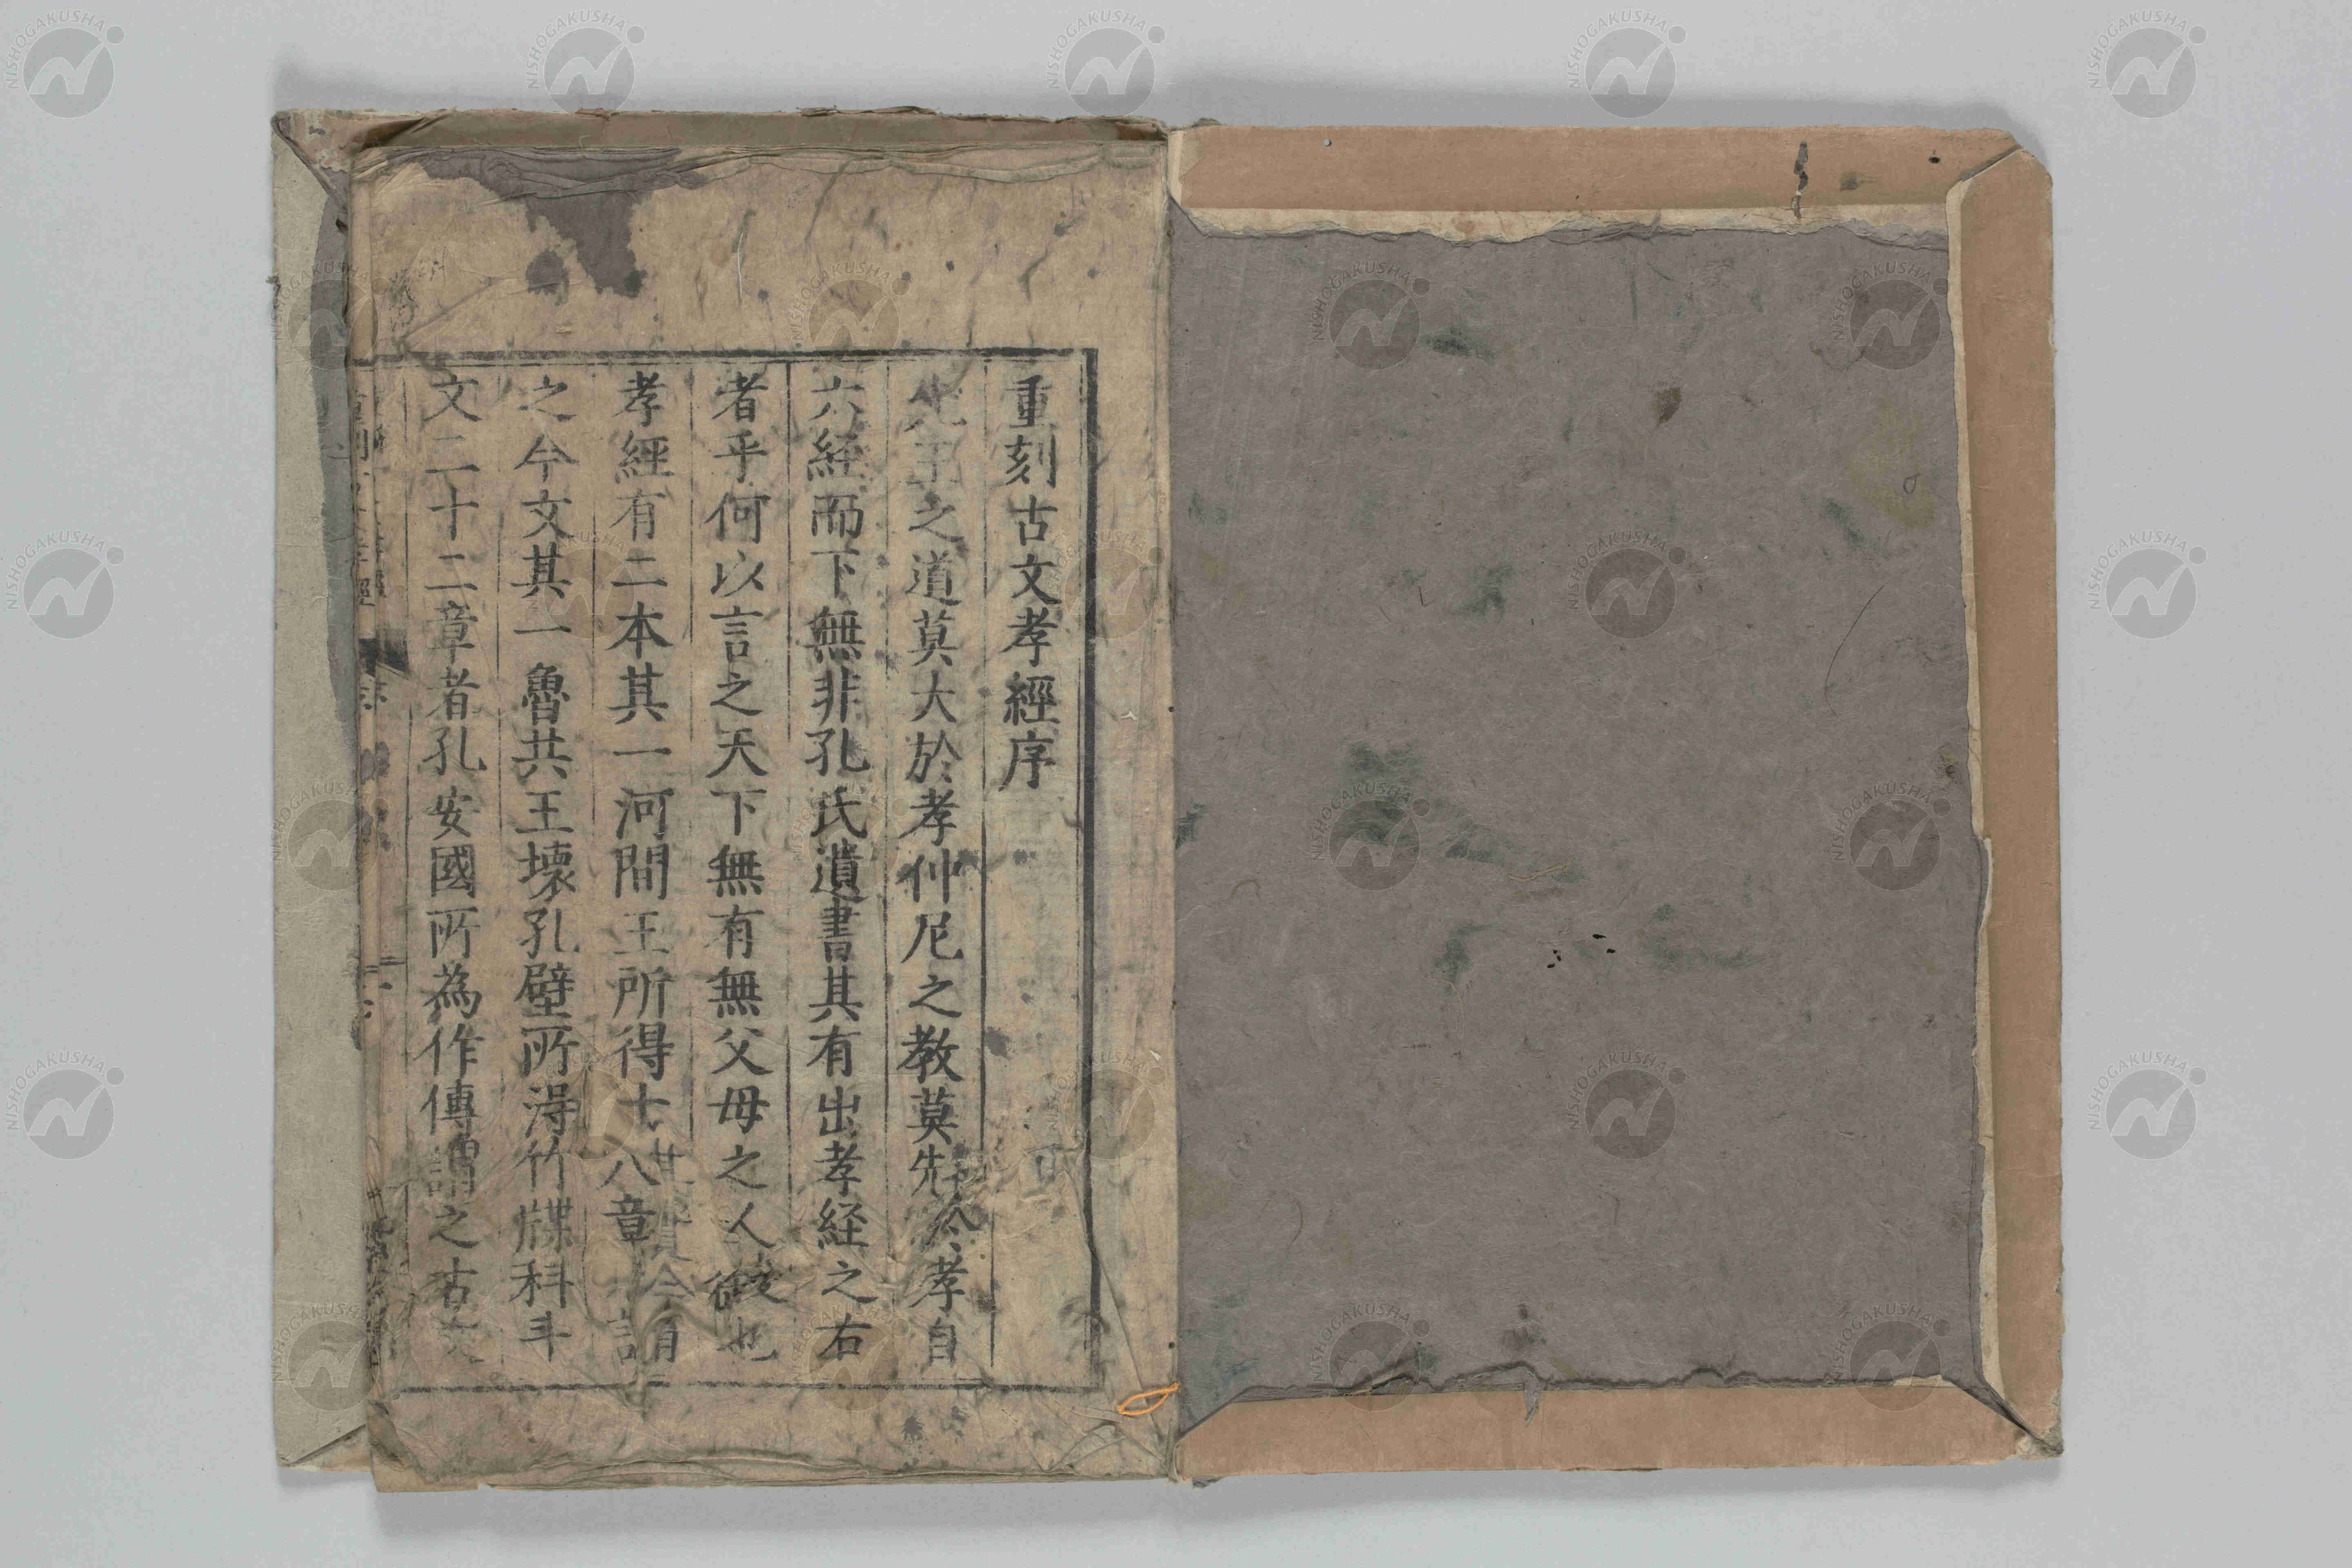 重刻古文孝經序
先王之道莫大於孝仲尼之教莫先於孝自
六経而下無非孔氏遺書其有出孝経之右
者乎何以言之天下無有無父母之人故也
孝經有二本其一河間王所得十八章謂
之今文其一魯共王壞孔壁所淂竹牒科斗
文二十二章者孔安國所為作傳謂之古文
NISHOGAKUSHA